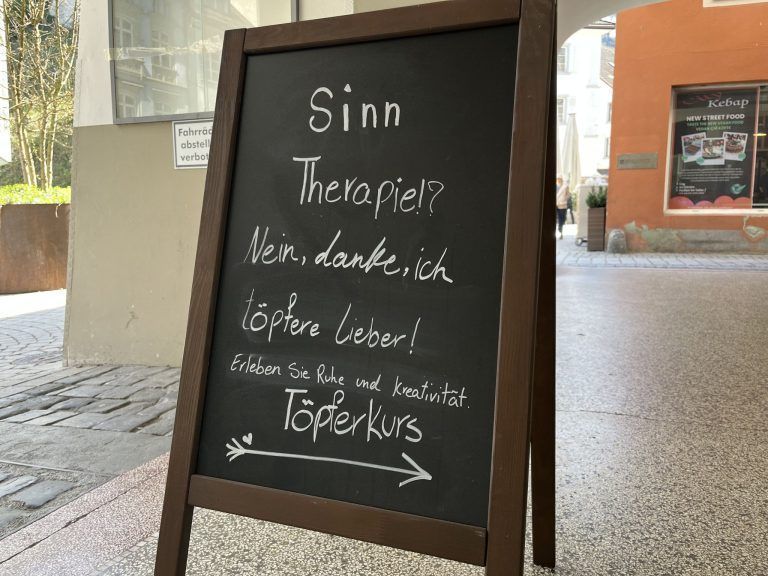 Sinn
Therapie!?
Nein, danke, ich
töpfere lieber!
Erleben Sie Ruhe und Kreativität.
Töpferkurs
Fahrräd
abstell
verbot
Kebap
NEW STREET FOOD